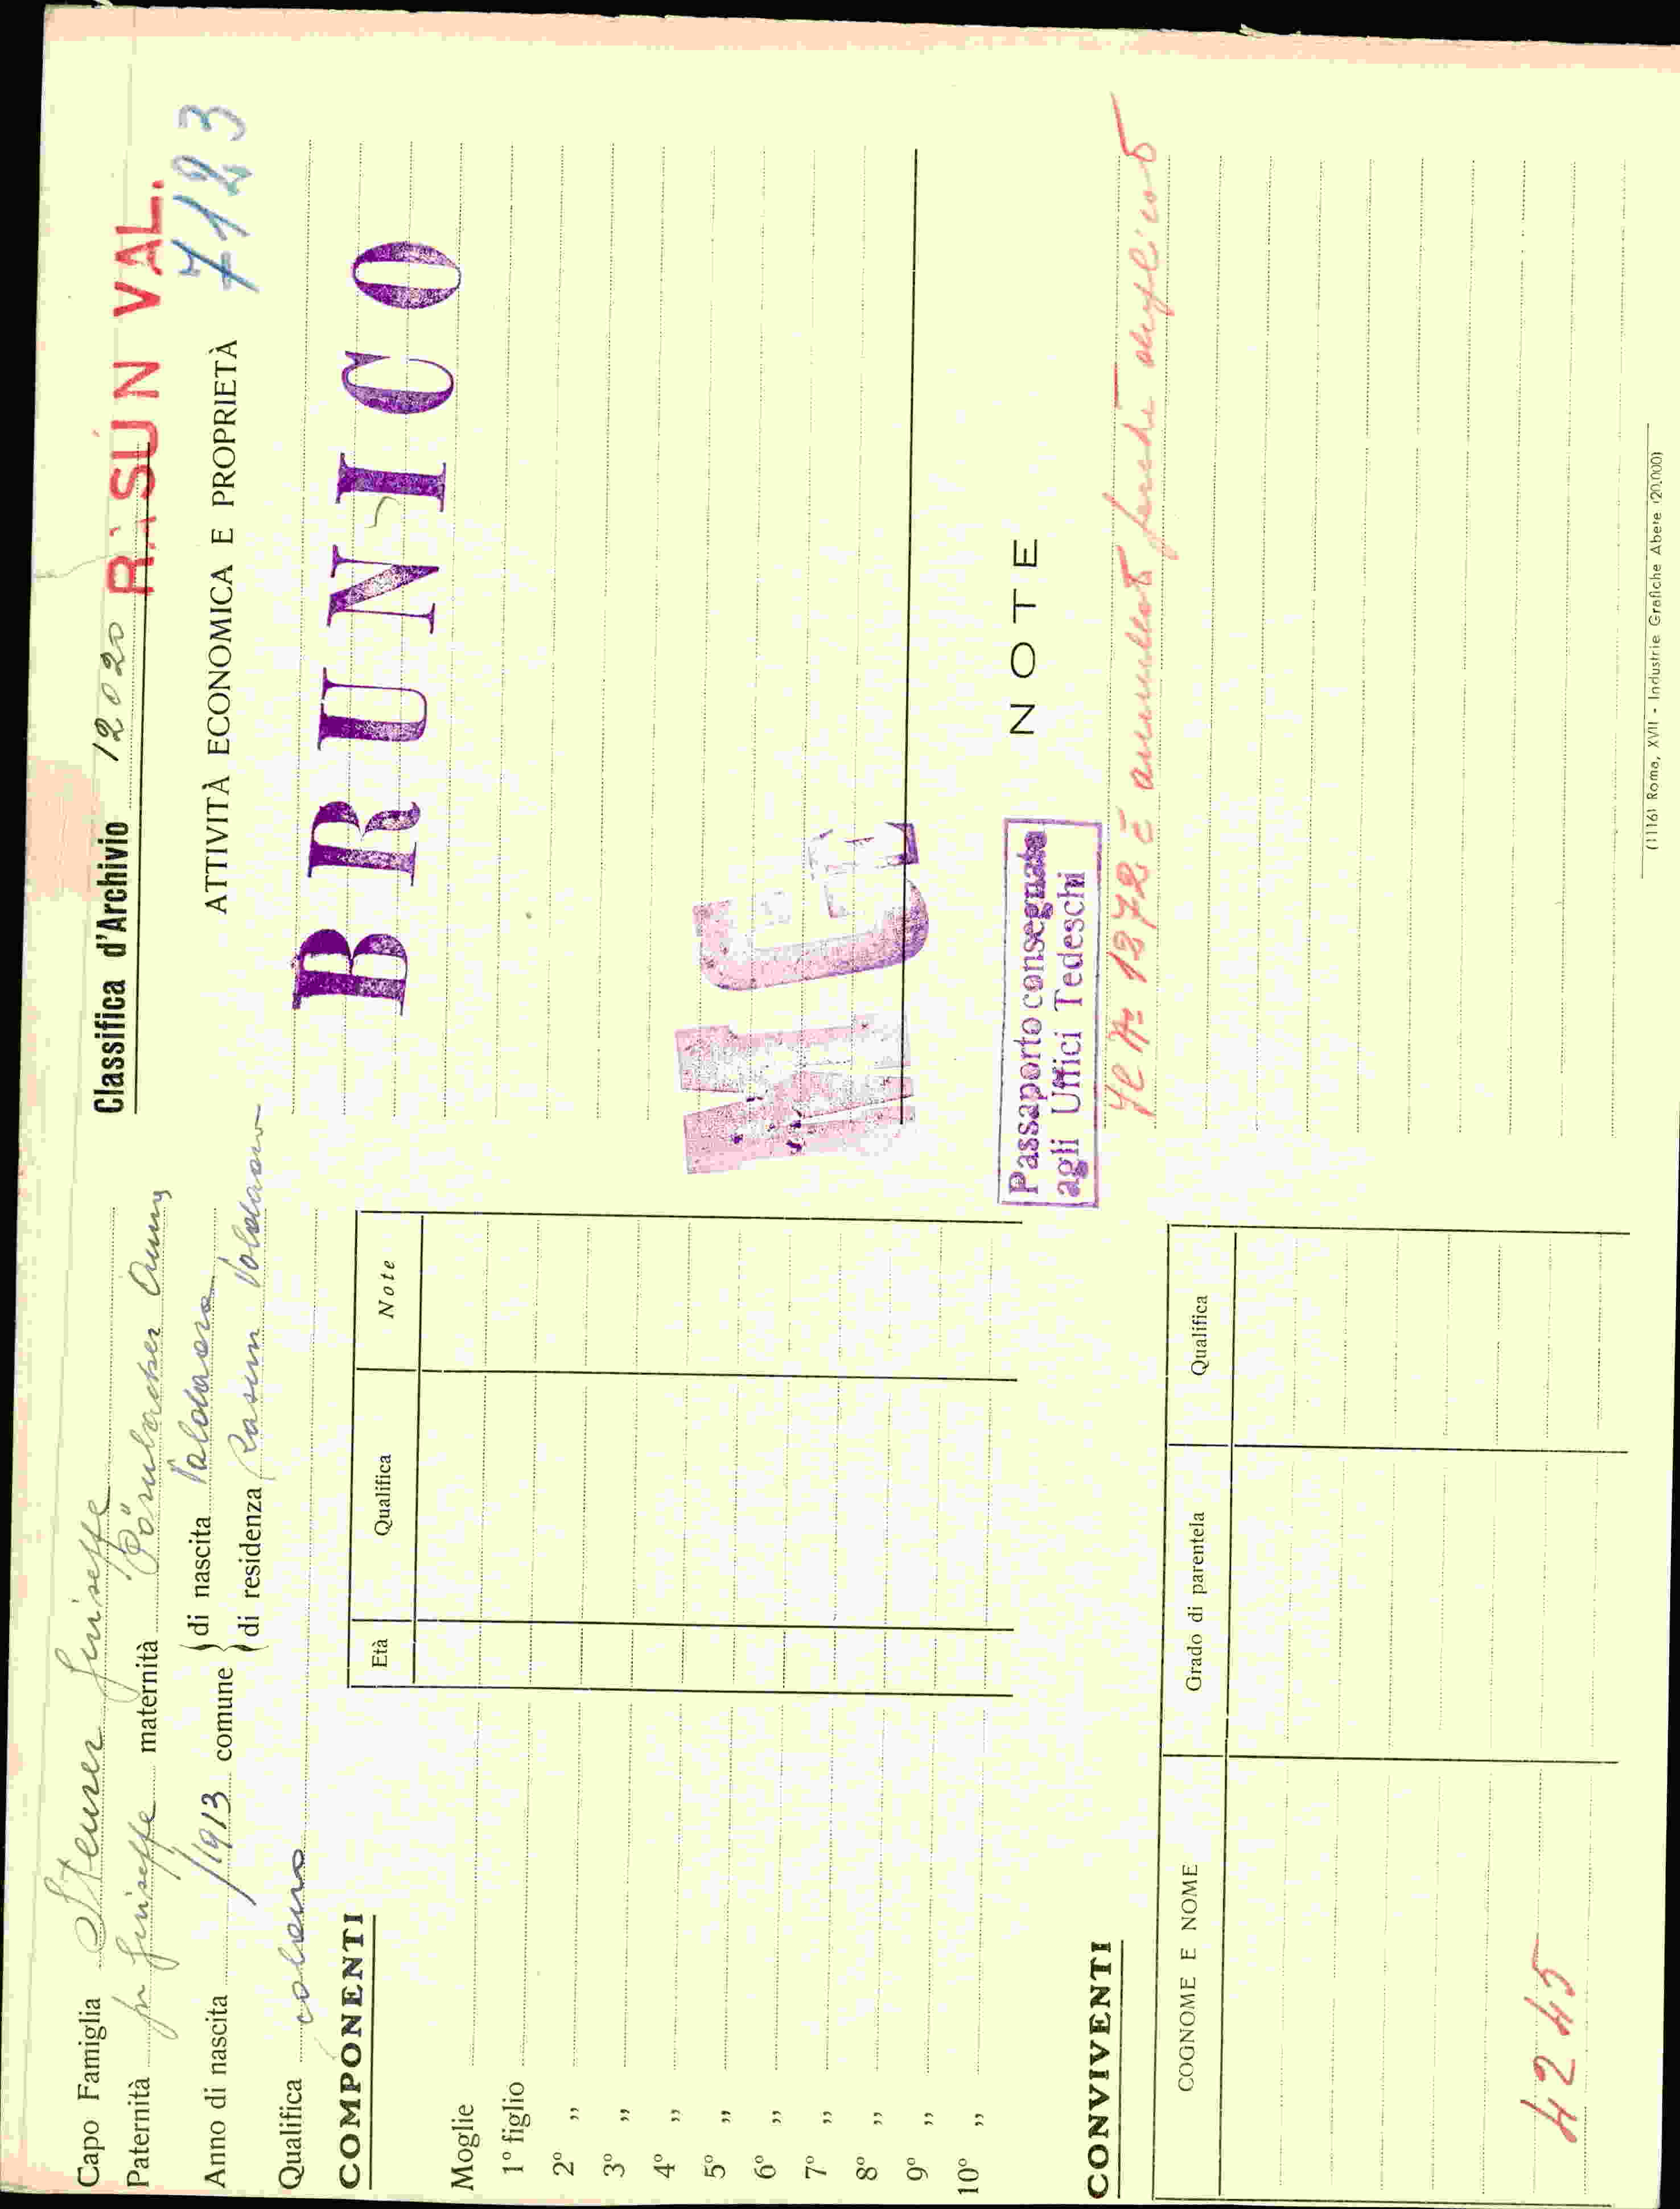 Capo Famiglia Steurer Giuseppe
Paternità fu Giuseppe maternità Pörnbacher Anna
Anno di nascita 1913 comune di nascita Valdaora
di residenza Rasun Valdaora
Qualifica colono
COMPONENTI
Età Qualifica Note
Moglie
1º figlio
2º „
3º „
4º „
5º „
6º „
7º „
8º „
9º „
10º „
CONVIVENTI
COGNOME E NOME Grado di parentela Qualifica
4245
Classifica d'Archivio 12020 RASUN VAL.
7123
ATTIVITÀ ECONOMICA E PROPRIETÀ
BRUNICO
NOTE
Passaporto consegnato
agli Uffici Tedeschi
Il N= 1872 è annullato perchè duplicato
(1116) Roma, XVII - Industrie Grafiche Abete (20.000)